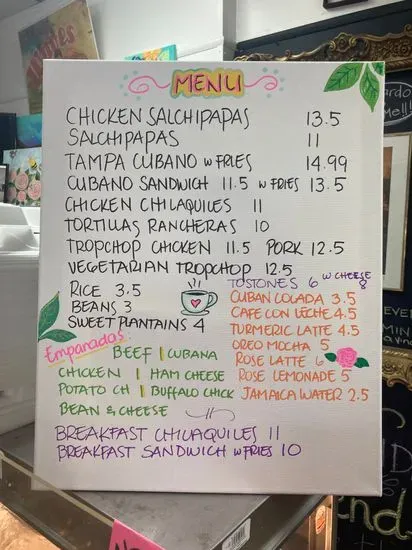 MENU
CHICKEN SALCHIPAPAS 13.5
SALCHIPAPAS 11
TAMPA CUBANO w FRIES 14.99
CUBANO SANDWICH 11.5 w FRIES 13.5
CHICKEN CHILAQUILES 11
TORTILLAS RANCHERAS 10
TROPCHOP CHICKEN 11.5 PORK 12.5
VEGETARIAN TROPCHOP 12.5
RICE 3.5
BEANS 3
SWEET PLANTAINS 4
TOSTONES 6 w CHEESE 8
CUBAN COLADA 3.5
CAFE CON LECHE 4.5
TURMERIC LATTE 4.5
OREO MOCHA 5
ROSE LATTE 6
ROSE LEMONADE 5
JAMAICA WATER 2.5
Empanadas
BEEF | CUBANA
CHICKEN | HAM CHEESE
POTATO CH | BUFFALO CHICK
BEAN & CHEESE
BREAKFAST CHILAQUILES 11
BREAKFAST SANDWICH w FRIES 10